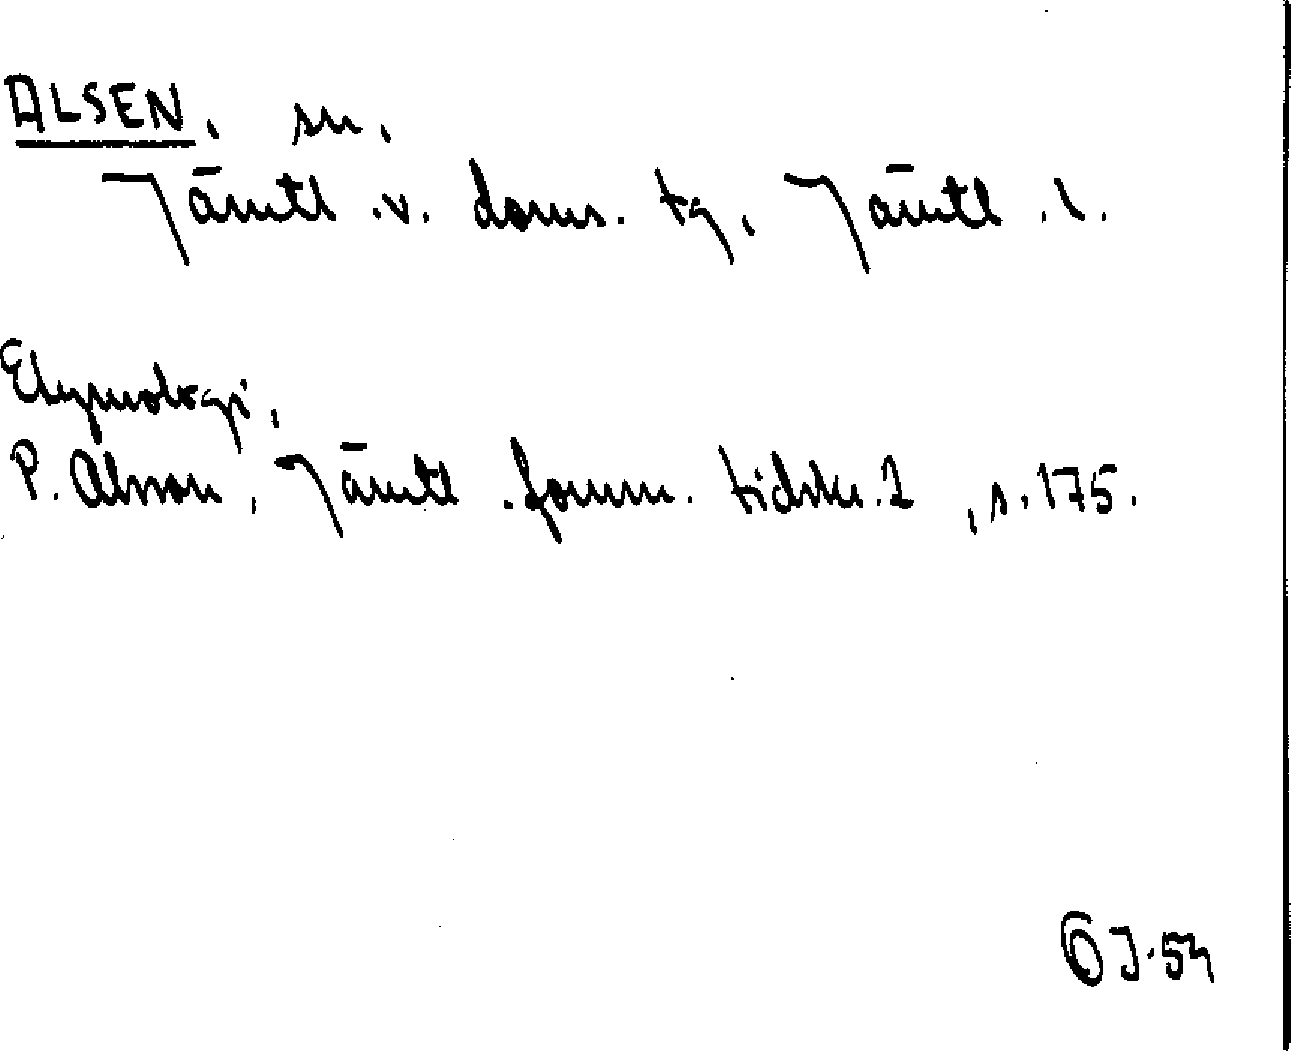 ALSEN, sn,
Jämtl. v. doms. tg, Jämtl. l.
Etymologi,
P. Olsson, Jämtl. fornm. tidskr. 2, s. 175.
ÖJ-54